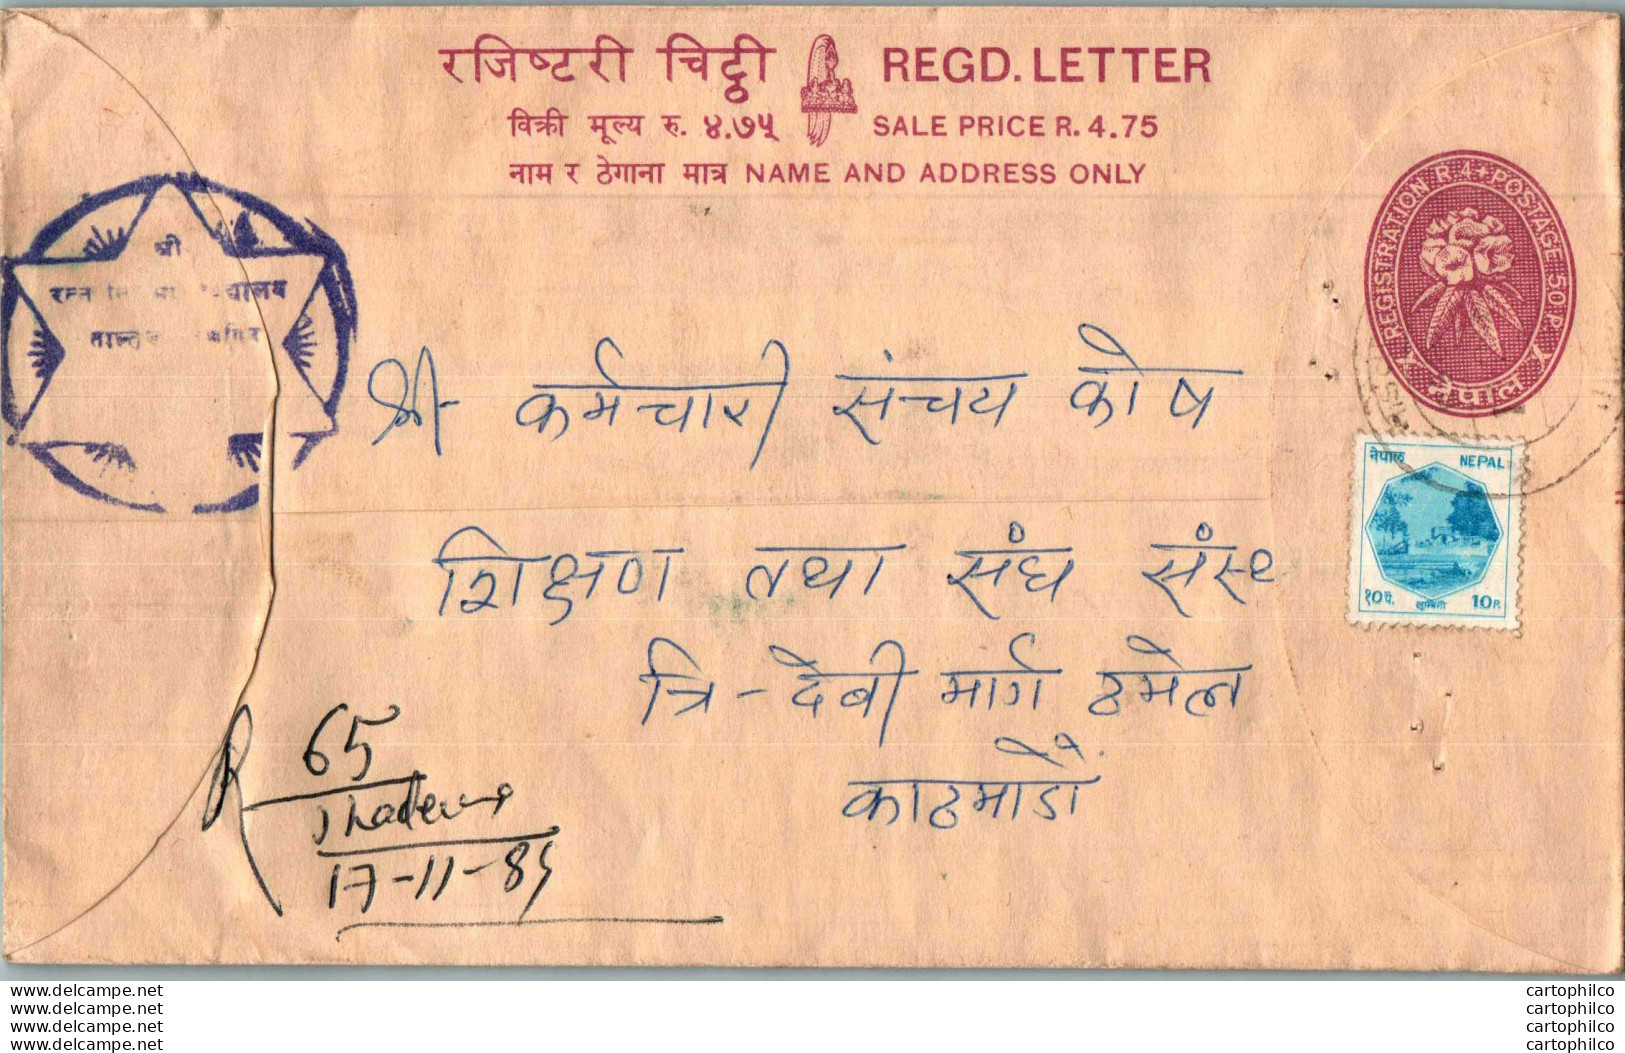 रजिष्टरी चिट्ठी REGD. LETTER
विक्री मूल्य रु. ४.७५ SALE PRICE R. 4.75
नाम र ठेगाना मात्र NAME AND ADDRESS ONLY
REGISTRATION R.4 + POSTAGE 50 P.
नेपाल
श्री
श्री कर्मचारी संचय कोष
नेपाल NEPAL
१० पै. लुम्बिनी 10 P.
शिक्षण तथा संघ संस्था
त्रि-देवी मार्ग ठमेल
काठमाडौं
R 65
17-11-85
www.delcampe.net cartophilco
www.delcampe.net cartophilco
www.delcampe.net cartophilco
www.delcampe.net cartophilco